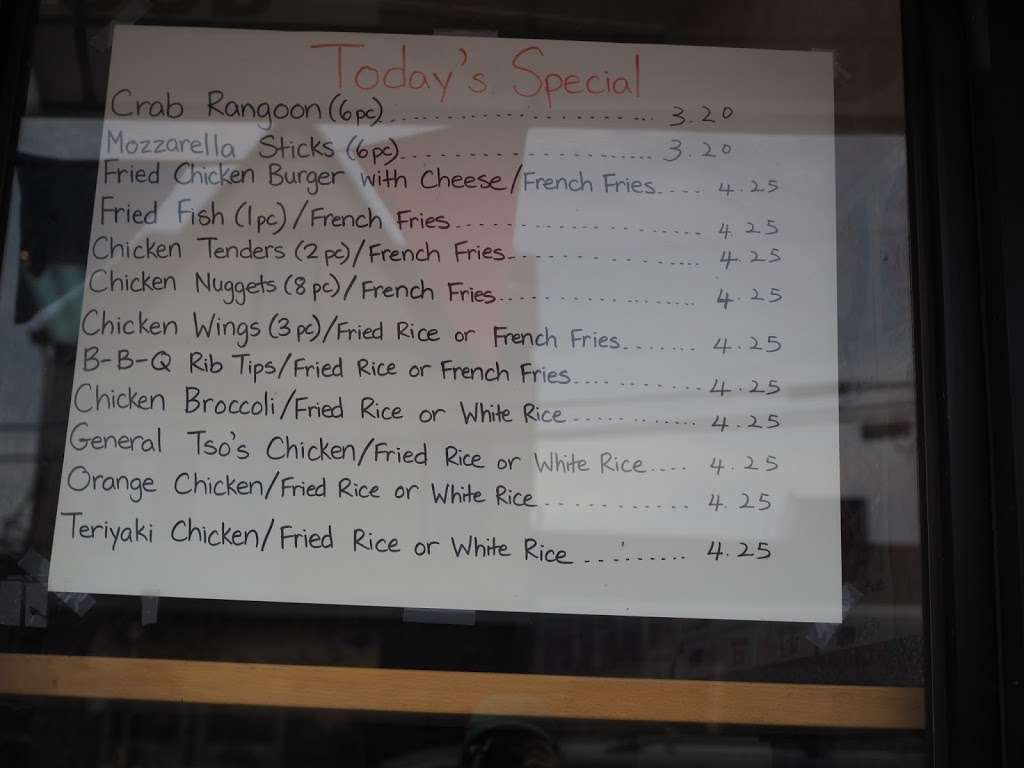 Today's Special
Crab Rangoon (6pc)........................... 3.20
Mozzarella Sticks (6pc)........................... 3.20
Fried Chicken Burger with Cheese/French Fries.... 4.25
Fried Fish (1pc)/French Fries........................ 4.25
Chicken Tenders (2pc)/French Fries.................. 4.25
Chicken Nuggets (8pc)/French Fries.................. 4.25
Chicken Wings (3pc)/Fried Rice or French Fries....... 4.25
B-B-Q Rib Tips/Fried Rice or French Fries............ 4.25
Chicken Broccoli/Fried Rice or White Rice............ 4.25
General Tso's Chicken/Fried Rice or White Rice.... 4.25
Orange Chicken/Fried Rice or White Rice............ 4.25
Teriyaki Chicken/Fried Rice or White Rice.......... 4.25